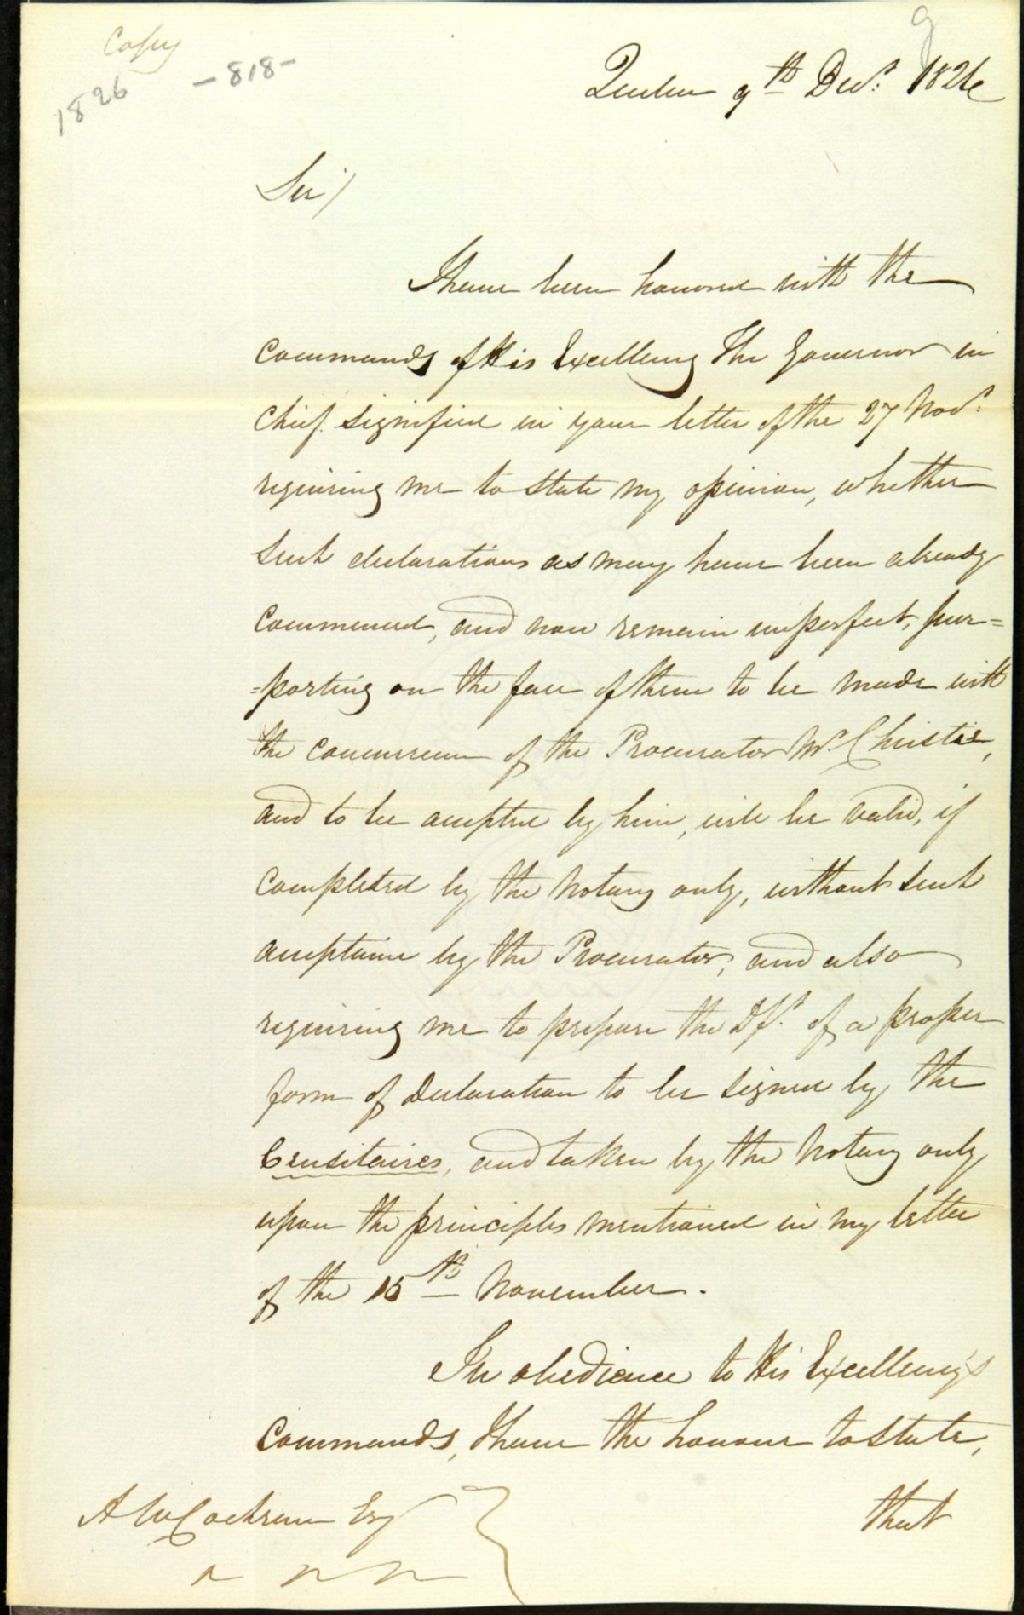 Copy
1826
-818-
9
Quebec 9th Decr. 1826
Sir/
I have been honored with the
commands of His Excellency The Governor in
chief signified in your letter of the 27 Novr.
requiring me to state my opinion, whether
such declarations as may have been already
commenced, and now remain imperfect, pur=
=porting on the face of them to be made with
the concurrence of the Procurator Mr. Christie,
and to be accepted by him, will be valid, if
completed by the Notary only, without such
acceptance by the Procurator, and also
requiring me to prepare the Dft. of a proper
form of Declaration to be signed by the
Censitaires, and taken by the Notary only
upon the principles mentioned in my letter
of the 15th November.
In obedience to His Excellency's
commands, I have the honour to state,
that
A W Cochrane Esq